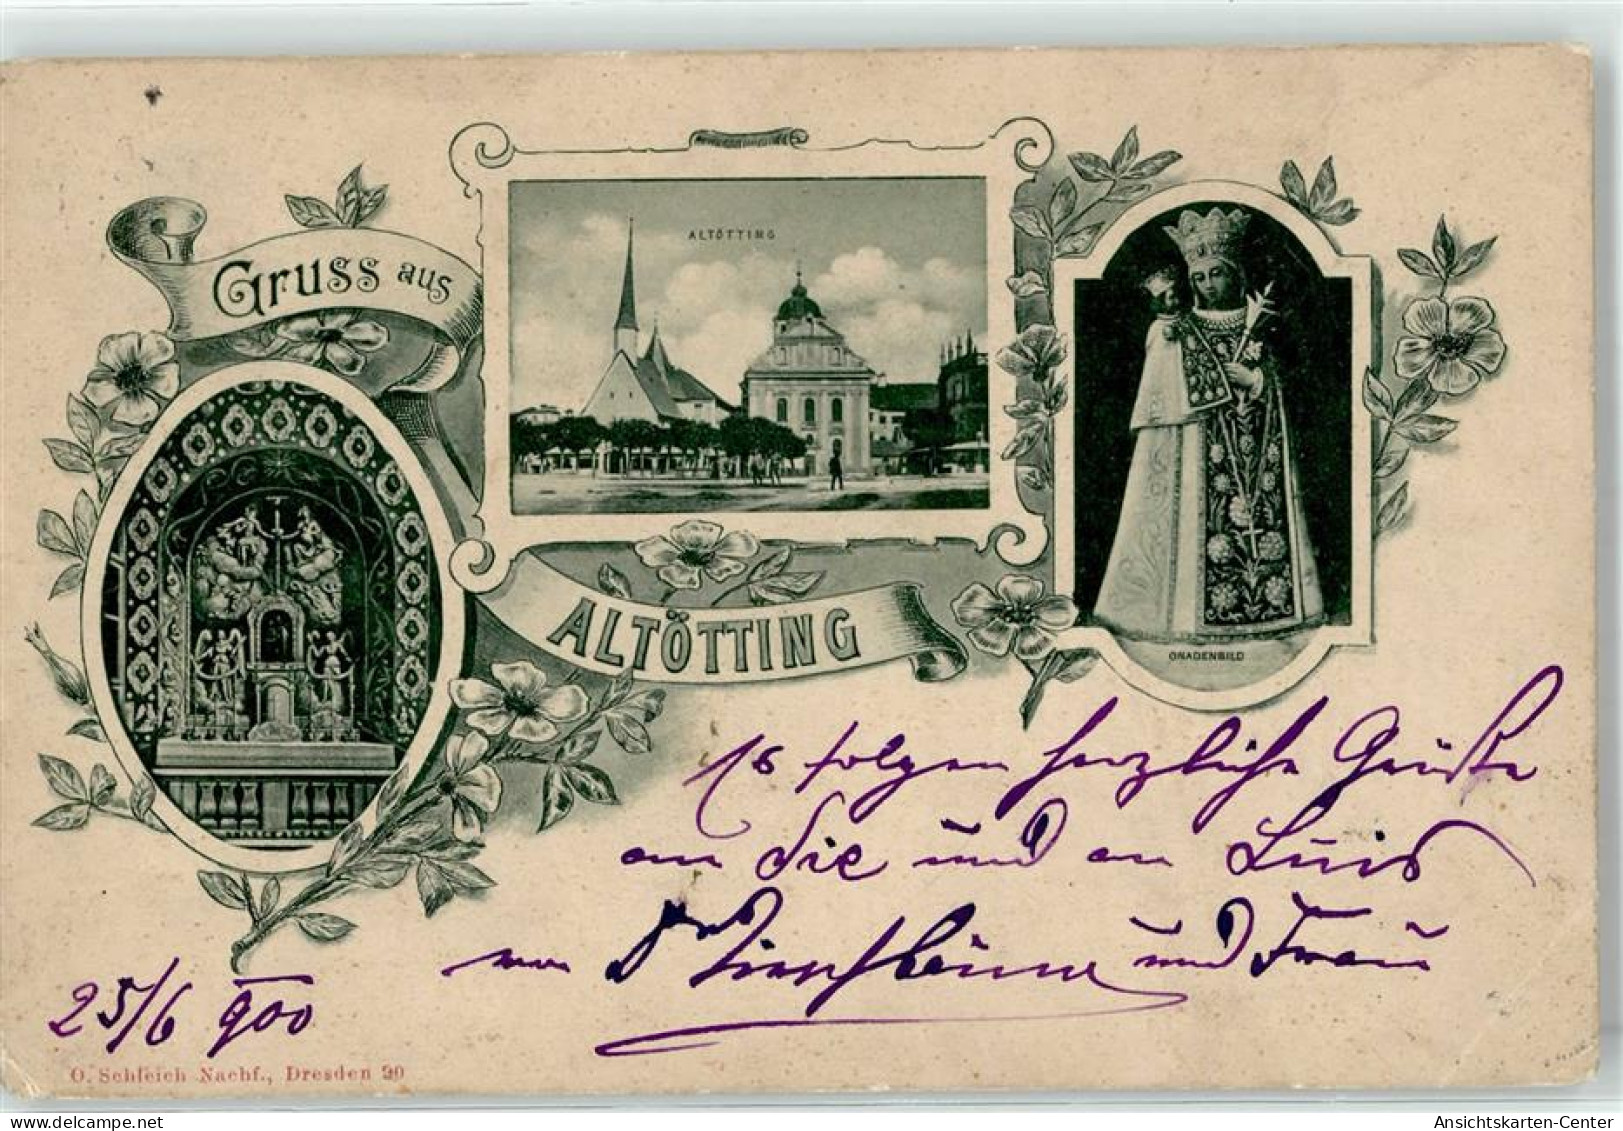 Gruss aus
ALTÖTTING
ALTÖTTING
GNADENBILD
folgen herzliche Grüße
an Sie und an Luis
von Dr und Frau
25/6 900
O. Schleich Nachf., Dresden 20
Ansichtskarten-Center